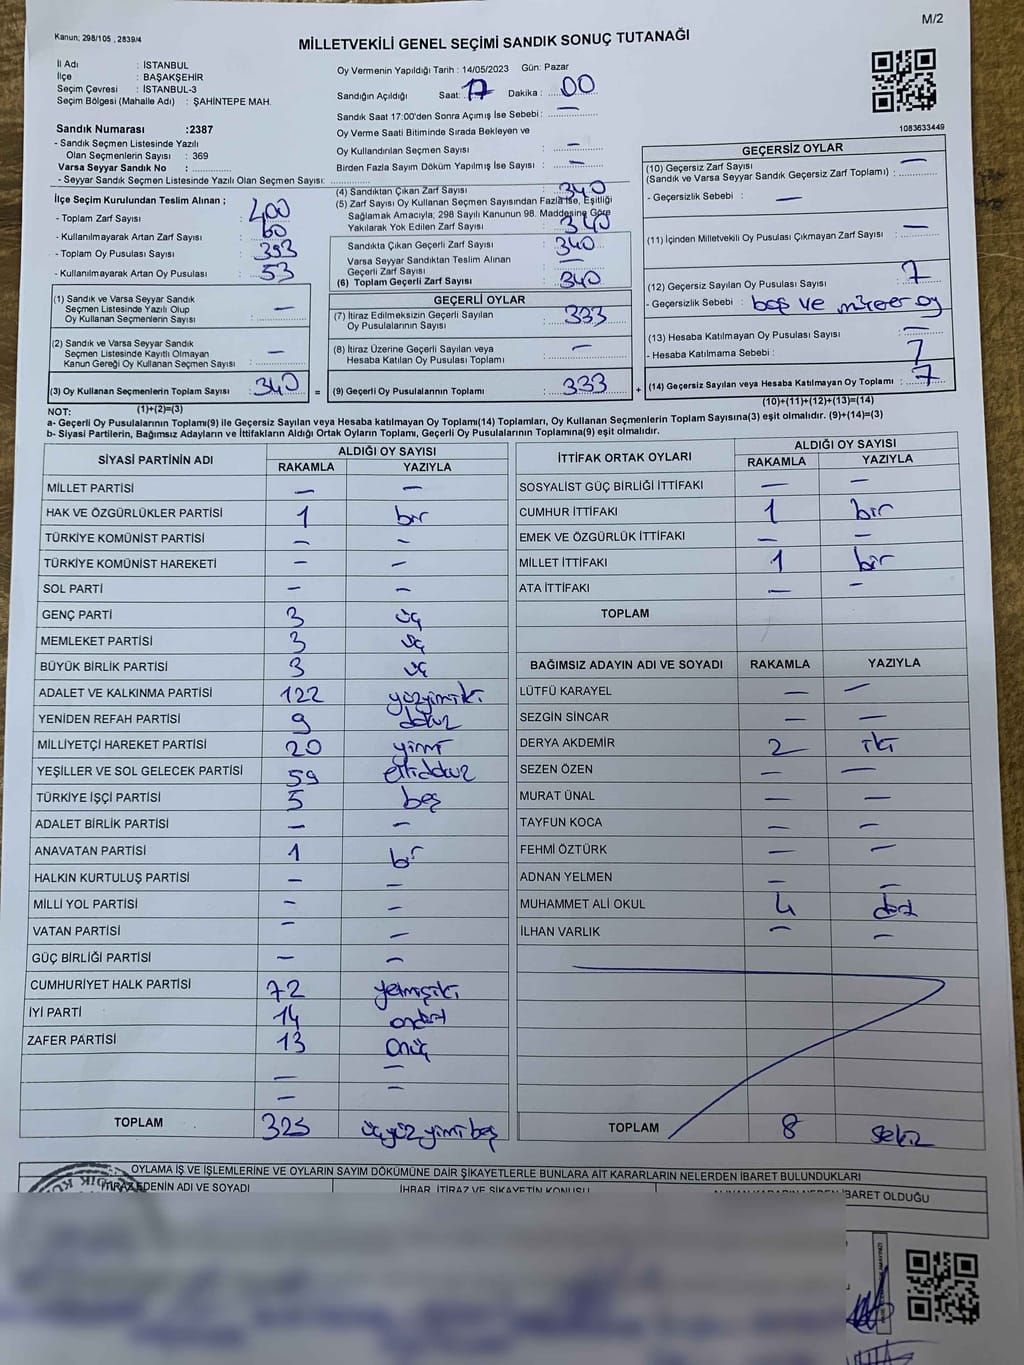 M/2
Kanun; 298/105 , 2839/4
MİLLETVEKİLİ GENEL SEÇİMİ SANDIK SONUÇ TUTANAĞI
İl Adı : İSTANBUL
İlçe : BAŞAKŞEHİR
Seçim Çevresi : İSTANBUL-3
Seçim Bölgesi (Mahalle Adı) : ŞAHİNTEPE MAH.
Sandık Numarası :2387
- Sandık Seçmen Listesinde Yazılı
Olan Seçmenlerin Sayısı : 369
Varsa Seyyar Sandık No :
- Seyyar Sandık Seçmen Listesinde Yazılı Olan Seçmen Sayısı:
İlçe Seçim Kurulundan Teslim Alınan ;
- Toplam Zarf Sayısı : 400
- Kullanılmayarak Artan Zarf Sayısı : 60
- Toplam Oy Pusulası Sayısı : 393
- Kullanılmayarak Artan Oy Pusulası : 53
(1) Sandık ve Varsa Seyyar Sandık
Seçmen Listesinde Yazılı Olup
Oy Kullanan Seçmenlerin Sayısı : —
(2) Sandık ve Varsa Seyyar Sandık
Seçmen Listesinde Kayıtlı Olmayan
Kanun Gereği Oy Kullanan Seçmen Sayısı : —
(3) Oy Kullanan Seçmenlerin Toplam Sayısı : 340 =
(1)+(2)=(3)
Oy Vermenin Yapıldığı Tarih : 14/05/2023 Gün: Pazar
Sandığın Açıldığı Saat: 17 Dakika : 00
Sandık Saat 17:00'den Sonra Açımış İse Sebebi : —
Oy Verme Saati Bitiminde Sırada Bekleyen ve
Oy Kullandırılan Seçmen Sayısı : —
Birden Fazla Sayım Döküm Yapılmış İse Sayısı : —
(4) Sandıktan Çıkan Zarf Sayısı : 340
(5) Zarf Sayısı Oy Kullanan Seçmen Sayısından Fazla İse, Eşitliği
Sağlamak Amacıyla, 298 Sayılı Kanunun 98. Maddesine Göre
Yakılarak Yok Edilen Zarf Sayısı : 340
Sandıkta Çıkan Geçerli Zarf Sayısı : 340
Varsa Seyyar Sandıktan Teslim Alınan
Geçerli Zarf Sayısı : —
(6) Toplam Geçerli Zarf Sayısı : 340
GEÇERLİ OYLAR
(7) İtiraz Edilmeksizin Geçerli Sayılan
Oy Pusulalarının Sayısı : 333
(8) İtiraz Üzerine Geçerli Sayılan veya
Hesaba Katılan Oy Pusulası Toplamı : —
(9) Geçerli Oy Pusulalarının Toplamı : 333 +
1083633449
GEÇERSİZ OYLAR
(10) Geçersiz Zarf Sayısı
(Sandık ve Varsa Seyyar Sandık Geçersiz Zarf Toplamı) : —
- Geçersizlik Sebebi : —
(11) İçinden Milletvekili Oy Pusulası Çıkmayan Zarf Sayısı : —
(12) Geçersiz Sayılan Oy Pusulası Sayısı : 7
- Geçersizlik Sebebi : boş ve oy
(13) Hesaba Katılmayan Oy Pusulası Sayısı : —
- Hesaba Katılmama Sebebi : 7
(14) Geçersiz Sayılan veya Hesaba Katılmayan Oy Toplamı : 7
(10)+(11)+(12)+(13)=(14)
NOT:
a- Geçerli Oy Pusulalarının Toplamı(9) ile Geçersiz Sayılan veya Hesaba katılmayan Oy Toplamı(14) Toplamları, Oy Kullanan Seçmenlerin Toplam Sayısına(3) eşit olmalıdır. (9)+(14)=(3)
b- Siyasi Partilerin, Bağımsız Adayların ve İttifakların Aldığı Ortak Oyların Toplamı, Geçerli Oy Pusulalarının Toplamına(9) eşit olmalıdır.
SİYASİ PARTİNİN ADI ALDIĞI OY SAYISI
RAKAMLA YAZIYLA
MİLLET PARTİSİ — —
HAK VE ÖZGÜRLÜKLER PARTİSİ 1 bir
TÜRKİYE KOMÜNİST PARTİSİ — —
TÜRKİYE KOMÜNİST HAREKETİ — —
SOL PARTİ — —
GENÇ PARTİ 3 üç
MEMLEKET PARTİSİ 3 üç
BÜYÜK BİRLİK PARTİSİ 3 üç
ADALET VE KALKINMA PARTİSİ 122 yüzyirmiiki
YENİDEN REFAH PARTİSİ 9 dokuz
MİLLİYETÇİ HAREKET PARTİSİ 20 yirmi
YEŞİLLER VE SOL GELECEK PARTİSİ 59 ellidokuz
TÜRKİYE İŞÇİ PARTİSİ 5 beş
ADALET BİRLİK PARTİSİ — —
ANAVATAN PARTİSİ 1 bir
HALKIN KURTULUŞ PARTİSİ — —
MİLLİ YOL PARTİSİ — —
VATAN PARTİSİ — —
GÜÇ BİRLİĞİ PARTİSİ — —
CUMHURİYET HALK PARTİSİ 72 yetmişiki
İYİ PARTİ 14 ondört
ZAFER PARTİSİ 13 onüç
— —
— —
TOPLAM 325 üçyüz yirmi beş
İTTİFAK ORTAK OYLARI ALDIĞI OY SAYISI
RAKAMLA YAZIYLA
SOSYALİST GÜÇ BİRLİĞİ İTTİFAKI — —
CUMHUR İTTİFAKI 1 bir
EMEK VE ÖZGÜRLÜK İTTİFAKI — —
MİLLET İTTİFAKI 1 bir
ATA İTTİFAKI — —
TOPLAM
BAĞIMSIZ ADAYIN ADI VE SOYADI RAKAMLA YAZIYLA
LÜTFÜ KARAYEL — —
SEZGİN SİNCAR — —
DERYA AKDEMİR 2 iki
SEZEN ÖZEN — —
MURAT ÜNAL — —
TAYFUN KOCA — —
FEHMİ ÖZTÜRK — —
ADNAN YELMEN — —
MUHAMMET ALİ OKUL 4 dört
İLHAN VARLIK — —
TOPLAM 8 sekiz
OYLAMA İŞ VE İŞLEMLERİNE VE OYLARIN SAYIM DÖKÜMÜNE DAİR ŞİKAYETLERLE BUNLARA AİT KARARLARIN NELERDEN İBARET BULUNDUKLARI
İTİRAZ EDENİN ADI VE SOYADI İHBAR, İTİRAZ VE ŞİKAYETİN KONUSU İBARET OLDUĞU